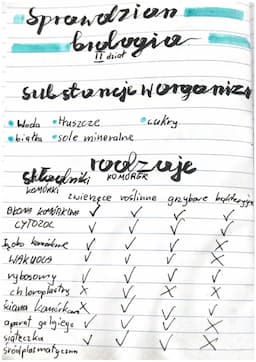 Sprawdzian
biologia
II dział
substancje w organizi
• Woda • tłuszcze • cukry
• białka • sole mineralne
rodzaje
składniki KOMÓREK
KOMÓRKI
zwierzęce roślinne grzybowe bakteryjna
BŁONA KOMÓRKOWA ✓ ✓ ✓ ✓
CYTOZOL ✓ ✓ ✓ ✓
Jądro komórkowe ✓ ✓ ✓ X
WAKUOLA ✓ ✓ ✓ X
rybosomy ✓ ✓ ✓ ✓
chloroplastry X ✓ X X
ściana komórkowa X ✓ ✓ ✓
aparat golgiego ✓ ✓ ✓ X
siateczka ✓ ✓ ✓ X
śródplazmatyczna